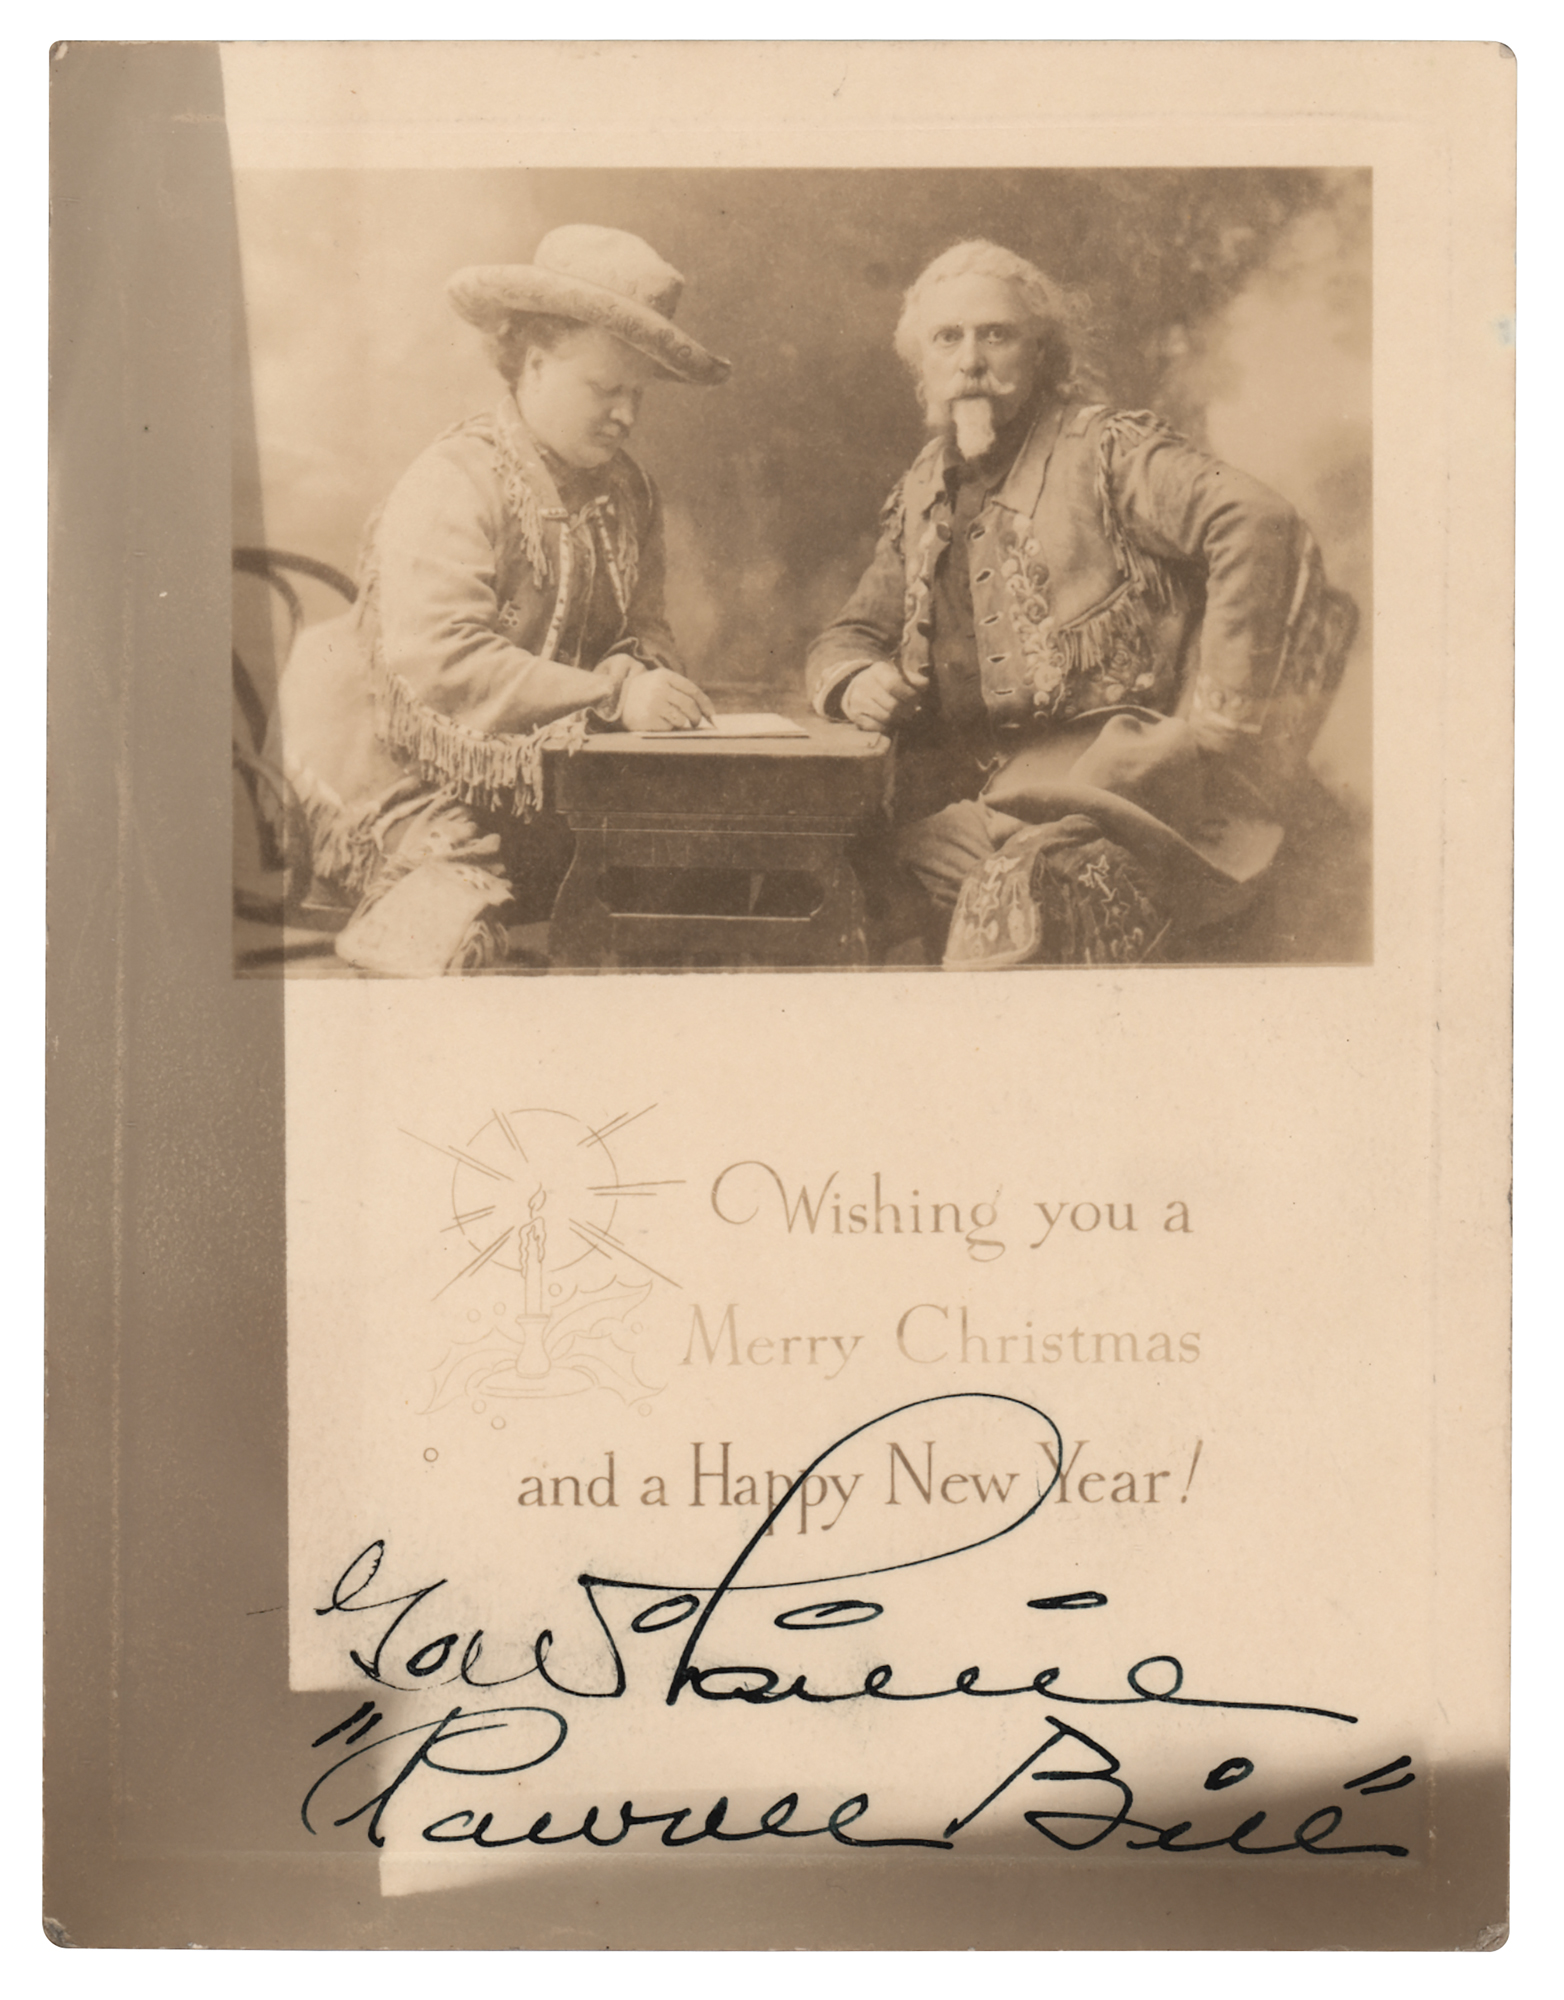 Wishing you a
Merry Christmas
and a Happy New Year!
G. W. Lillie
"Pawnee Bill"